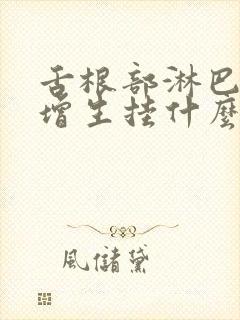 舌根部淋巴
增生挂什麼
風儲黛